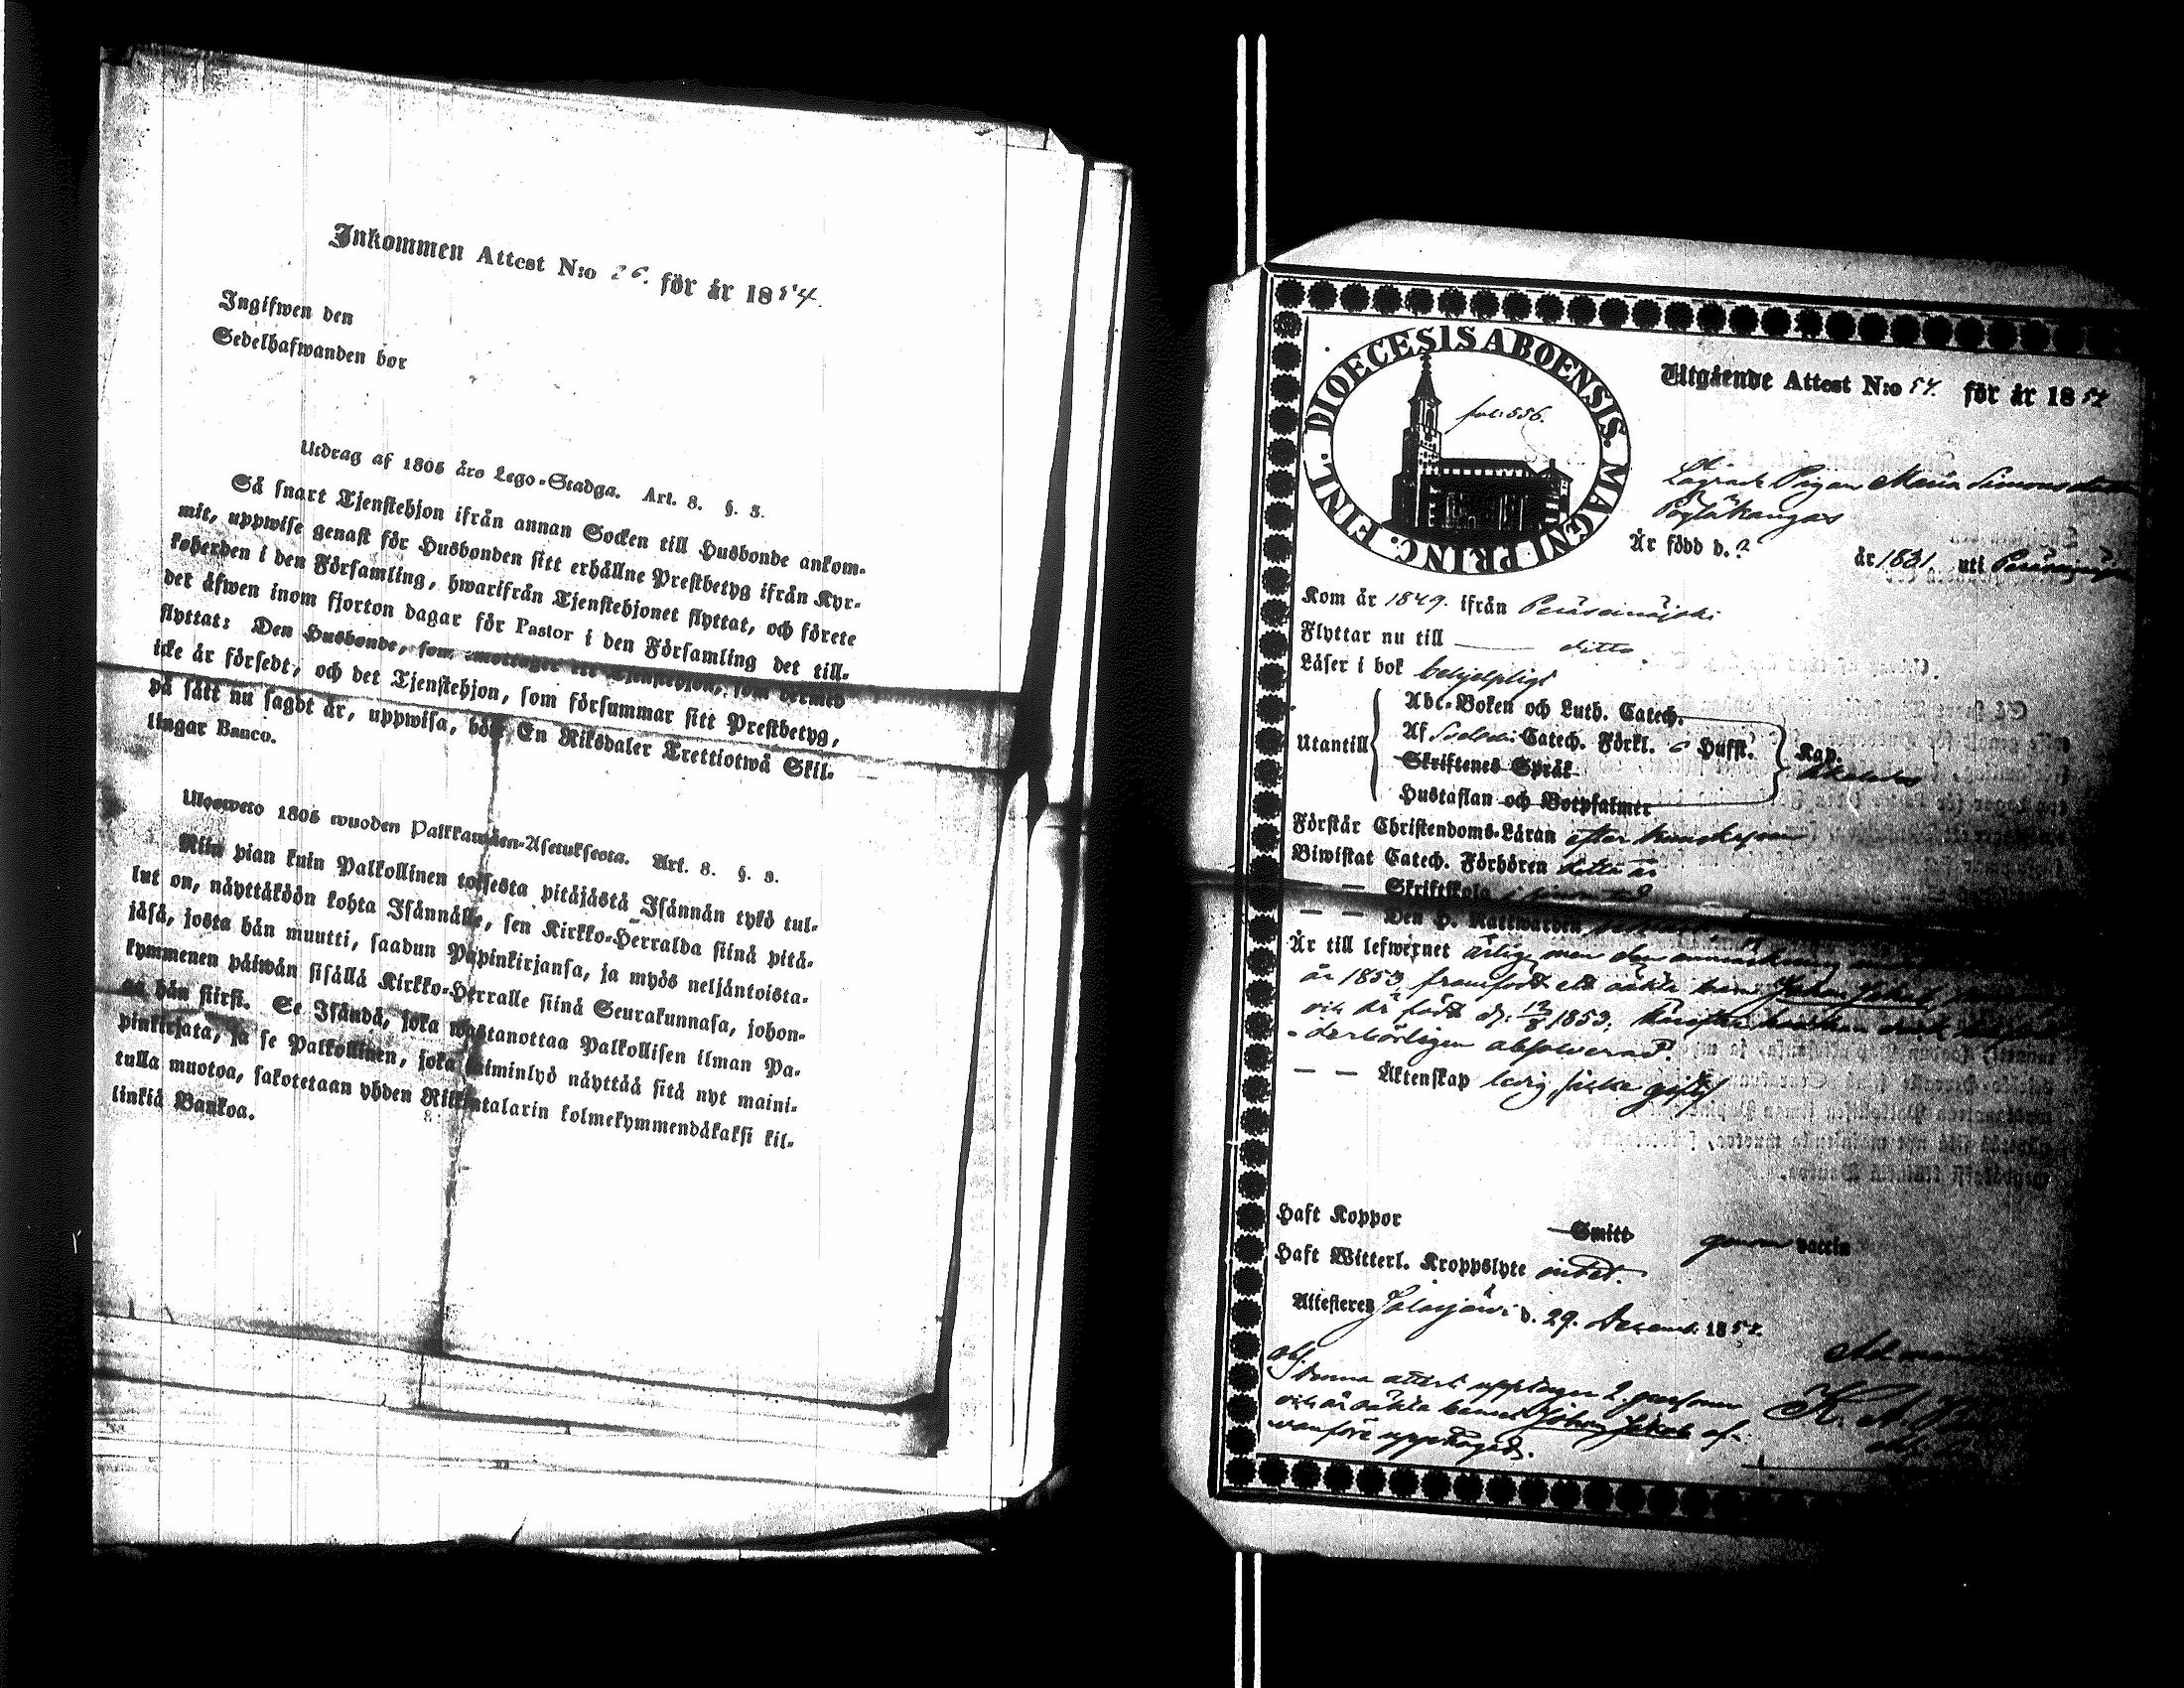 Inkommen Attest N:o 26. för år 1854.
Ingifwen den
Sedelhafwanden bor
Utdrag af 1805 års Lego-Stadga. Art. 8. §. 3.
Så snart Tjenstehjon ifrån annan Socken till Husbonde ankom-
mit, uppwise genast för Husbonden sitt erhållne Prestbetyg ifrån Kyr-
koherden i den Församling, hwarifrån Tjenstehjonet flyttat, och förete
det äfwen inom fjorton dagar för Pastor i den Församling det till-
flyttat: Den Husbonde, som emottager ett Tjenstehjon, som dermed
icke är försedt, och det Tjenstehjon, som försummar sitt Prestbetyg,
på sätt nu sagdt är, uppwisa, böte En Riksdaler Trettiotwå Skil-
lingar Banco.
Ulosweto 1805 wuoden Palkkawäen-Asetuksesta. Art. 8. §. 3.
Niin pian kuin Palkollinen toisesta pitäjästä Isännän tykö tul-
lut on, näyttäköön kohta Isännälle, sen Kirkko-Herralda siinä pitä-
jäsä, josta hän muutti, saadun Papinkirjansa, ja myös neljäntoista-
kymmenen päiwän sisällä Kirkko-Herralle siinä Seurakunnasa, johon-
ga hän siirsi. Se Isändä, joka wastanottaa Palkollisen ilman Pa-
pinkirjata, ja se Palkollinen, joka laiminlyö näyttää sitä nyt maini-
tulla muotoa, sakotetaan yhden Riikintalarin kolmekymmendäkaksi kil-
linkiä Bankoa.
DIOECESIS ABOENSIS. MAGNI PRINC. FINL.
fol: 556.
Utgående Attest N:o 54. för år 1854
Lägrade Pigan Maria Simonsdotter
Är född d. ? år 1831. uti
Kom år 1849. ifrån Peräseinäjoki
Flyttar nu till ditto.
Läser i bok behjelpligt
Utantill
Abc-Boken och Luth. Catech.
Af Catech. Förkl. 6 Hufst. Kap.
Skriftenes Språk
Hustaflan och Botpsalmer
Förstår Christendoms-Läran efter kunskapen
Biwistat Catech. Förhören detta år
— Skriftskola i sinom tid
— — Den H. Nattwarden
Är till lefwernet ärlig, men den anmärkning
år 1853, framfödt ett oäkta barn Johan Jakob,
och är född d: 12/8 1853.
-derbörligen absolverad.
— — Äktenskap ledig, icke gift
Haft Koppor Smitt genom vaccin
Haft Witterl. Kroppslyte intet.
Attesteres Jalasjärwi d. 29. Decemb. 1854.
Obs.
I denna attest upptagen 2 personer
och är oäkta barnet Johan Jakob of-
wanföre upptaget.
K. A.